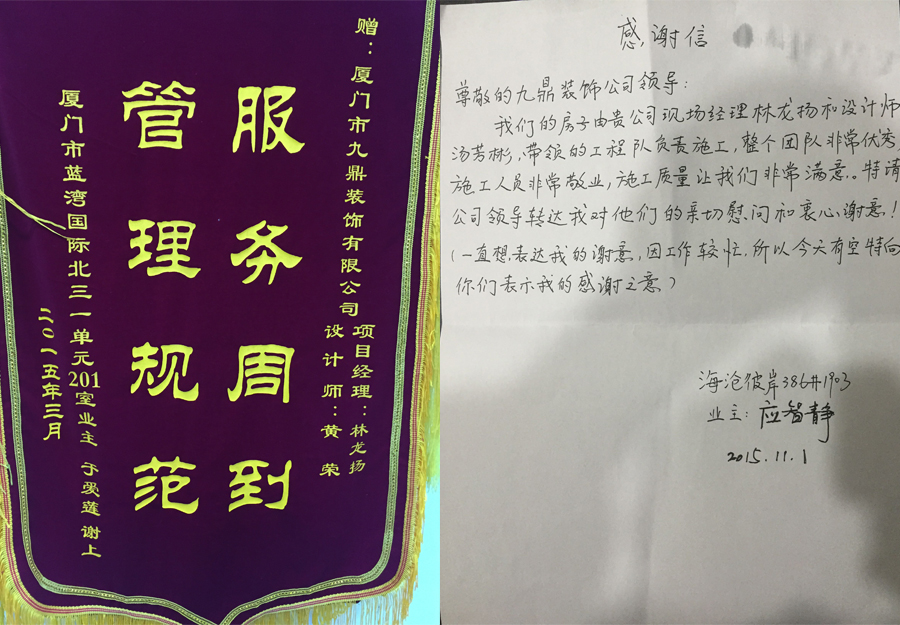 赠：厦门市九鼎装饰有限公司
项目经理：林龙扬
设计师：黄荣
服务周到
管理规范
厦门市蓝湾国际北三一单元201室业主 于爱莲 谢上
二〇一五年三月
感谢信
尊敬的九鼎装饰公司领导：
我们的房子由贵公司现场经理林龙扬和设计师
汤芳彬，带领的工程队负责施工，整个团队非常优秀，
施工人员非常敬业，施工质量让我们非常满意。特请
公司领导转达我对他们的亲切慰问和衷心谢意！
（一直想表达我的谢意，因工作较忙，所以今天有空特向
你们表示我的感谢之意）
海沧彼岸386#1903
业主：应智静
2015.11.1